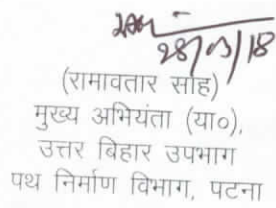 28/03/18
(रामावतार साह)
मुख्य अभियंता (या०),
उत्तर बिहार उपभाग
पथ निर्माण विभाग, पटना